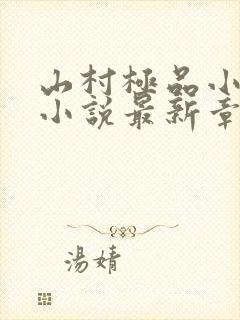 山村極品小
小說最新章
湯婧